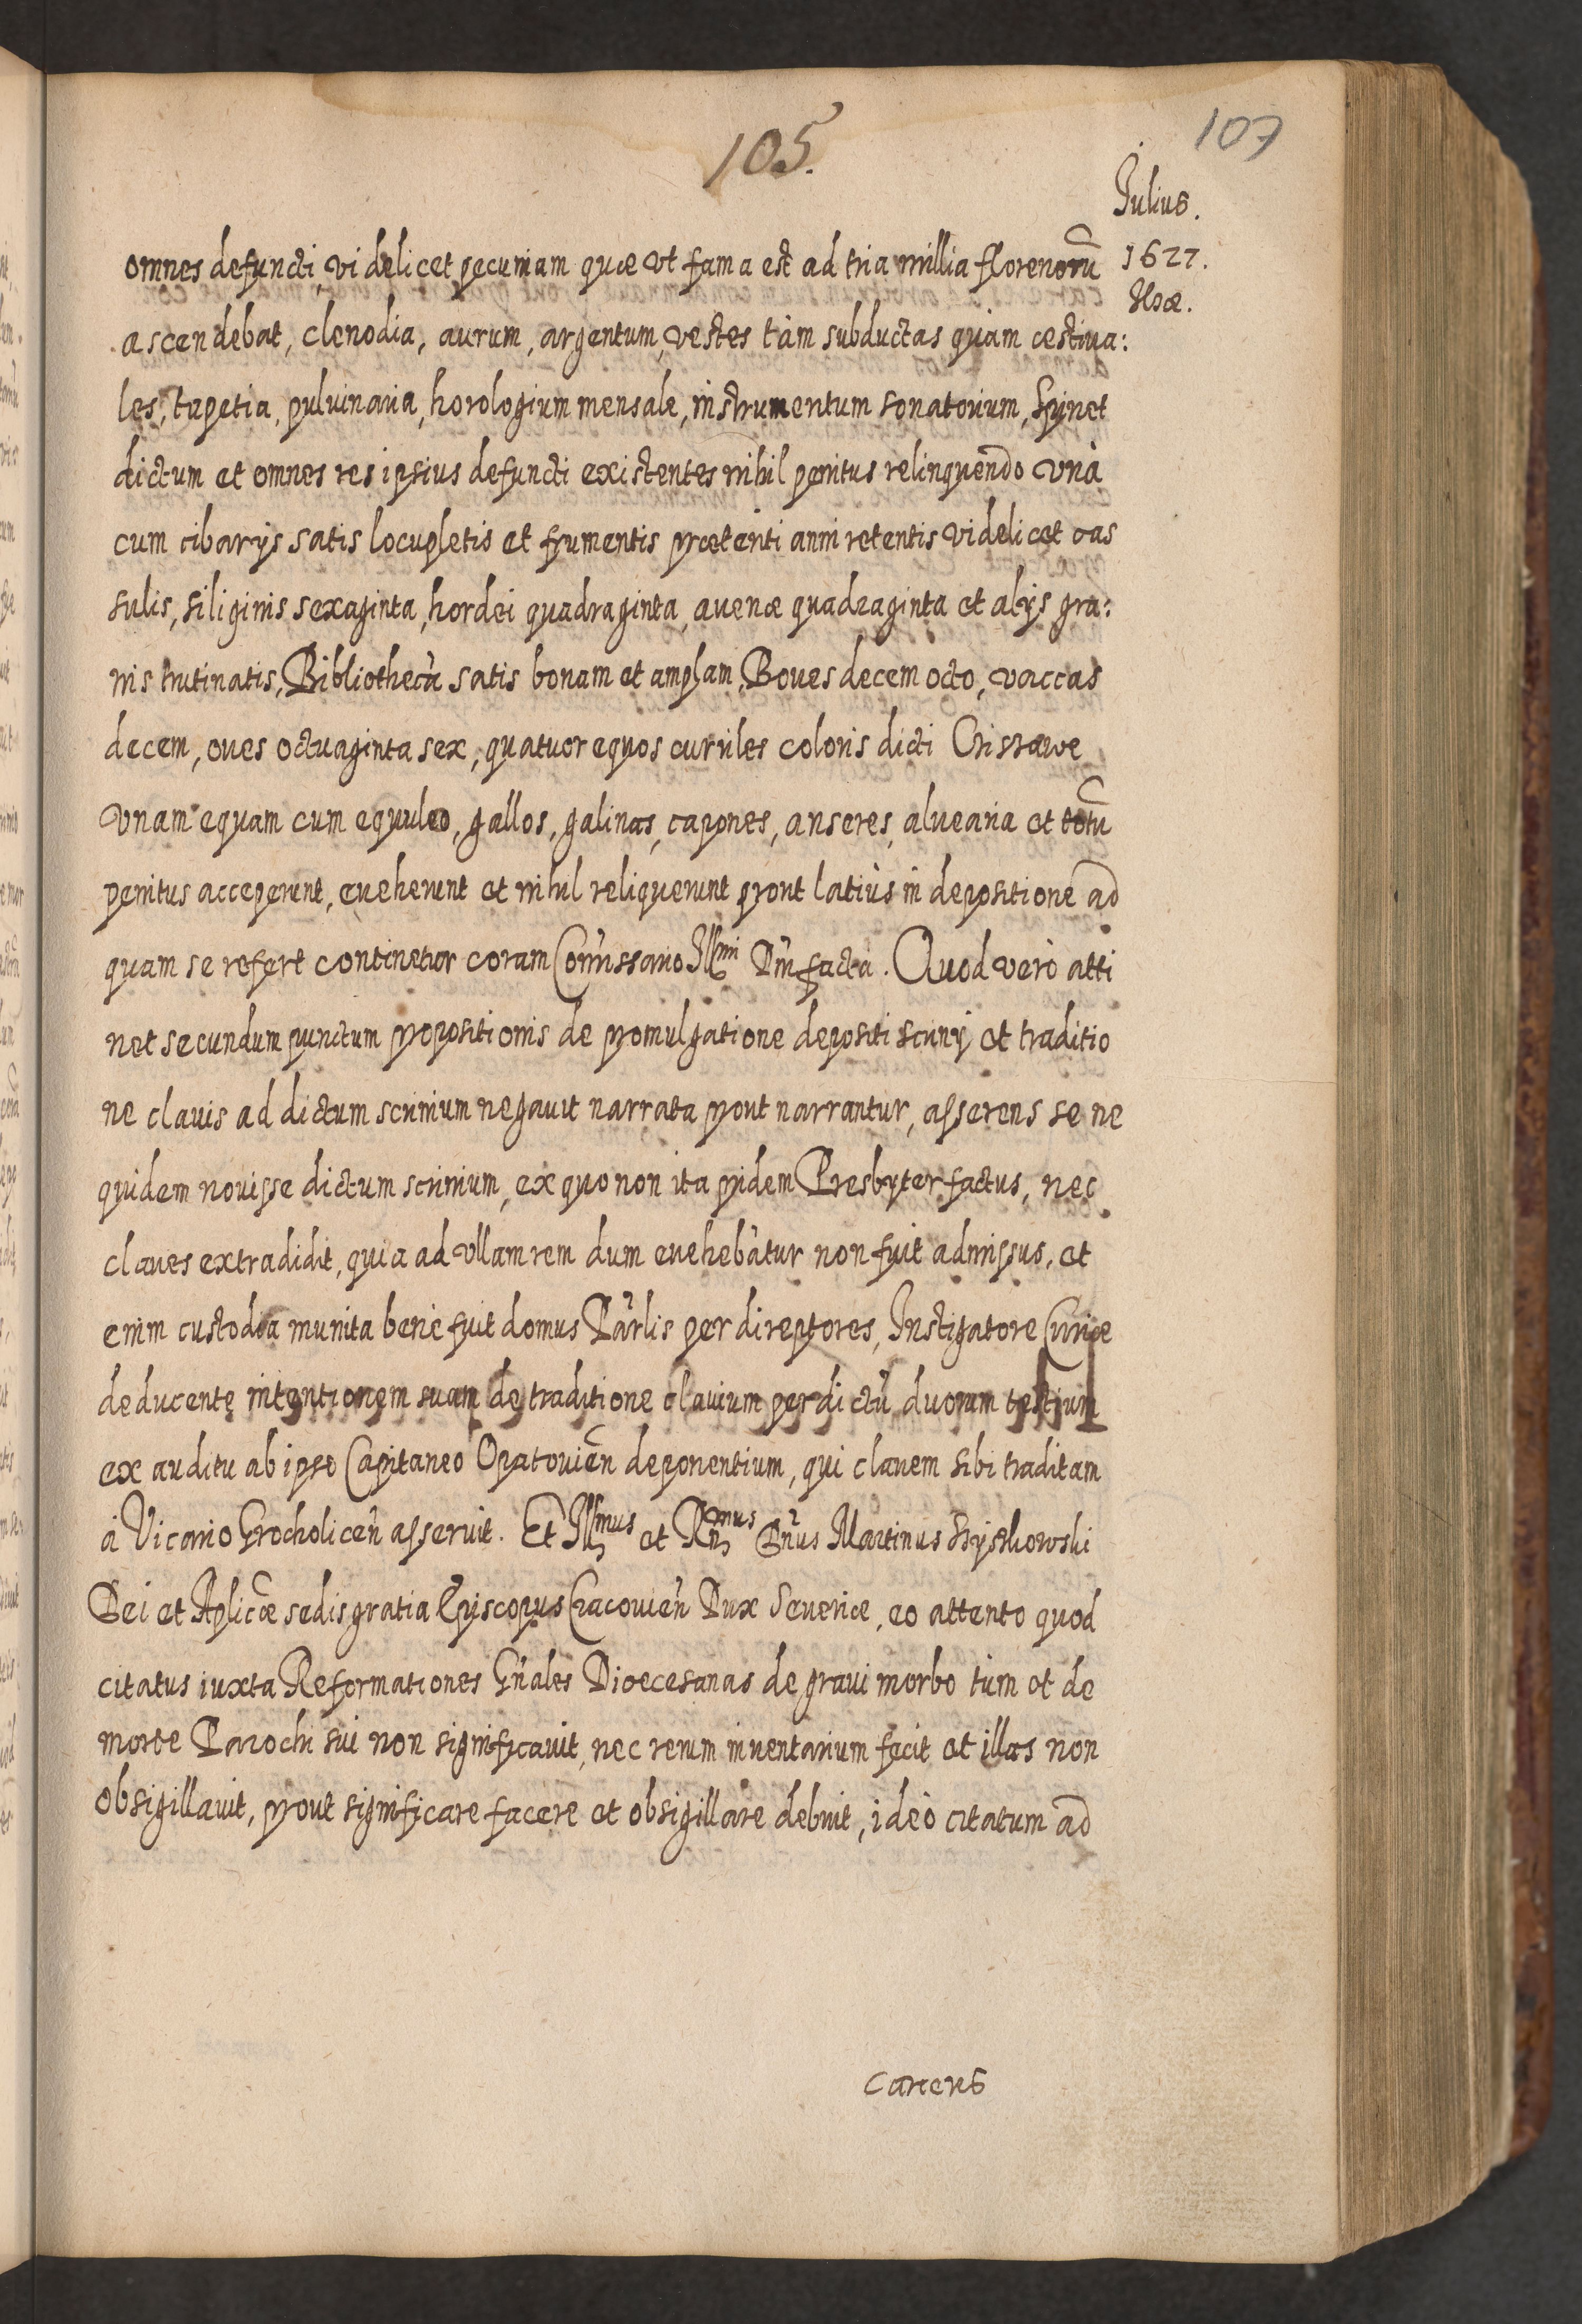 105.
107
Julius.
1627.
Ilzæ.
omnes defuncti, videlicet pecuniam quæ vt fama est ad tria millia florenorū
ascendebat, clenodia, aurum, argentum, vestes tàm subductas quàm œstiua:
les, tapetia, puluinaria, horologium mensale, instrumentum sonatorium, Spinet
dictum et omnes res ipsius defuncti existentes nihil penitus relinquendo vnà
cum cibarijs satis locupletis et frumentis præteriti anni retentis videlicet cas
sulis, siliginis sexaginta, hordei quadraginta, auenæ quadraginta et alijs gra:
nis trutinatis, Bibliothecā satis bonam et amplam, Boues decem octo, vaccas
decem, oues octuaginta sex, quatuor equos curriles coloris dicti Cissawe
vnam equam cum equuleo, gallos, galinas, capones, anseres, aluearia et totū
penitus acceperunt, eueherunt et nihil reliquerunt prout latiùs in depositione ad
quam se refert continetur coram Com̃issario Illmi Dn̄i facta. Quod verò atti
net secundum punctum propositionis de promulgatione depositi scrinij et traditio
ne clauis ad dictum scrinium negauit narrata prout narrantur, asserens se ne
quidem nouisse dictum scrinium, ex quo non ita pridem Presbyter factus, nec
claues extradidit, quia ad vllam rem dum euehebātur non fuit admissus, et
enim custodia munita benè fuit domus Parlis per direptores, Instigatore Curiæ
deducente intentionem suam de traditione clauium per dictū duorum testium
ex auditu ab ipso Capitaneo Opatouien̄ deponentium, qui clauem sibi traditam
à Vicario Grocholicen̄ asseruit. Et Illmus et Rn̄mus Dn̄us Martinus Szyszkowski
Dei et Aplicæ sedis gratia Episcopus Cracouien̄ Dux Seueriæ, eo attento quod
citatus iuxta Reformationes Gn̄ales Diœcesanas de graui morbo tùm et de
morte Parochi sui non significauit, nec rerum inuentarium fecit et illas non
obsigillauit, prout significare facere et obsigillare debuit, ideò citatum ad
carcers